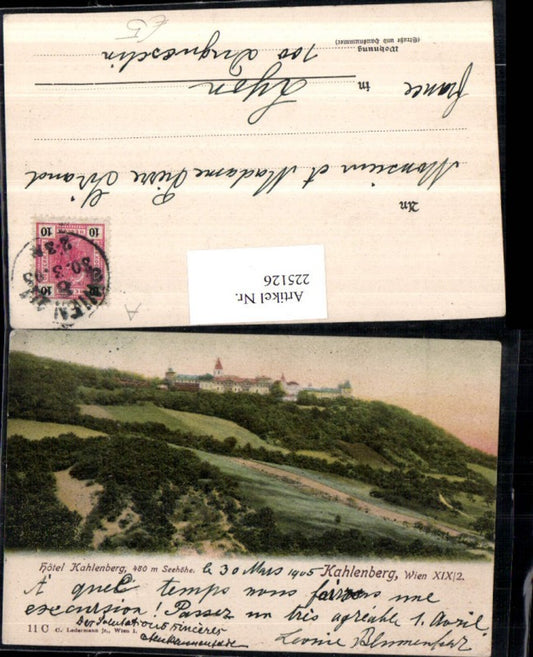 An
Monsieur et Madame Pierre Girand
in Lyon
Wohnung
(Straße und Hausnummer)
100 Duguesclin
France
10 10
10 10
30.3.05
Artikel Nr.
225126
A
£5
Hôtel Kahlenberg, 480 m Seehöhe.
le 30 Mars 1905
Kahlenberg, Wien XIX/2.
A quel temps nous faisons une
excursion! Passez un très agréable 1. Avril.
Des Salutations sincères
Leonie Blumenfeld
11 C C. Ledermann Jr., Wien I.